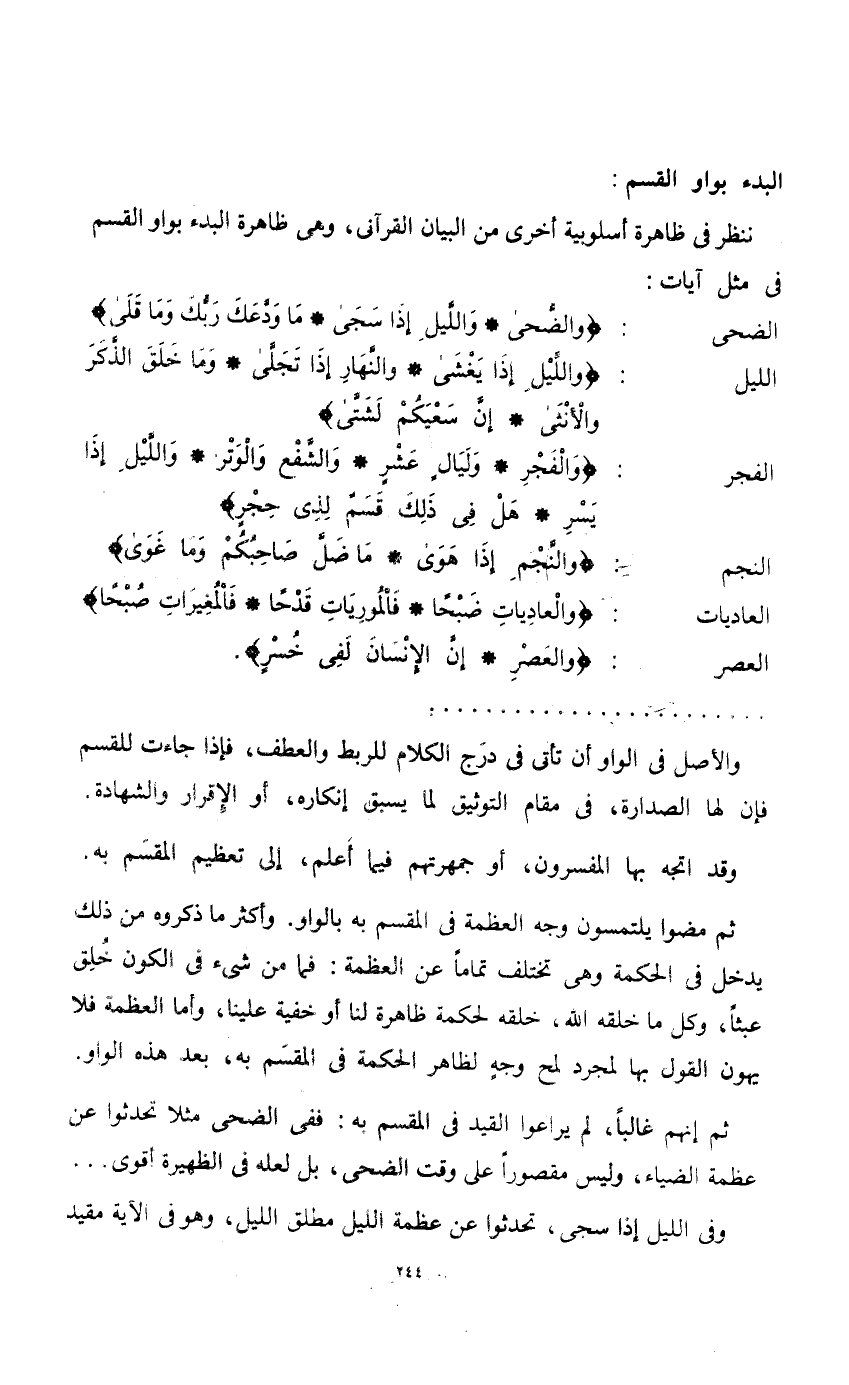 البدء بواو القسم :
ننظر فى ظاهرة أسلوبية أخرى من البيان القرآنى، وهى ظاهرة البدء بواو القسم
فى مثل آيات :
الضحى : ﴿والضُّحىٰ * وَاللَّيلِ إذَا سَجَىٰ * مَا وَدَّعَكَ رَبُّكَ وَمَا قَلَىٰ﴾
الليل : ﴿واللَّيْلِ إذَا يَغْشَىٰ * والنَّهَارِ إذَا تَجَلَّىٰ * وَمَا خَلَقَ الذَّكَرَ
والْأنْثَىٰ * إنَّ سَعْيَكُمْ لَشَتَّىٰ﴾
الفجر : ﴿وَالْفَجْرِ * وَلَيَالٍ عَشْرٍ * وَالشَّفْعِ وَالْوَتْرِ * وَاللَّيْلِ إذَا
يَسْرِ * هَلْ فِى ذَلِكَ قَسَمٌ لِذِى حِجْرٍ﴾
النجم : ﴿والنَّجْمِ إذَا هَوَىٰ * مَا ضَلَّ صَاحِبُكُمْ وَمَا غَوَىٰ﴾
العاديات : ﴿والْعادِياتِ ضَبْحًا * فَالْمُورِيَاتِ قَدْحًا * فَالْمُغِيرَاتِ صُبْحًا﴾
العصر : ﴿والعَصْرِ * إنَّ الإنْسَانَ لَفِى خُسْرٍ﴾.
. . . . . . . . . . . . . . . . . . . . . . . :
والأصل فى الواو أن تأتى فى درَج الكلام للربط والعطف، فإذا جاءت للقسم
فإن لها الصدارة، فى مقام التوثيق لما يسبق إنكاره، أو الإقرار والشهادة.
وقد اتجه بها المفسرون، أو جمهرتهم فيما أَعلم، إلى تعظيم المقسَم به.
ثم مضوا يلتمسون وجه العظمة فى المقسم به بالواو. وأكثر ما ذكروه من ذلك
يدخل فى الحكمة وهى تختلف تماماً عن العظمة : فما من شىء فى الكون خُلِق
عبثاً، وكل ما خلقه الله، خلقه لحكمة ظاهرة لنا أو خفية علينا، وأما العظمة فلا
يهون القول بها لمجرد لمح وجهٍ لظاهر الحكمة فى المقسَم به، بعد هذه الواو.
ثم إنهم غالباً، لم يراعوا القيد فى المقسم به : ففى الضحى مثلا تحدثوا عن
عظمة الضياء، وليس مقصوراً على وقت الضحى، بل لعله فى الظهيرة أقوى...
وفى الليل إذا سجى، تحدثوا عن عظمة الليل مطلق الليل، وهو فى الآية مقيد
٢٤٤